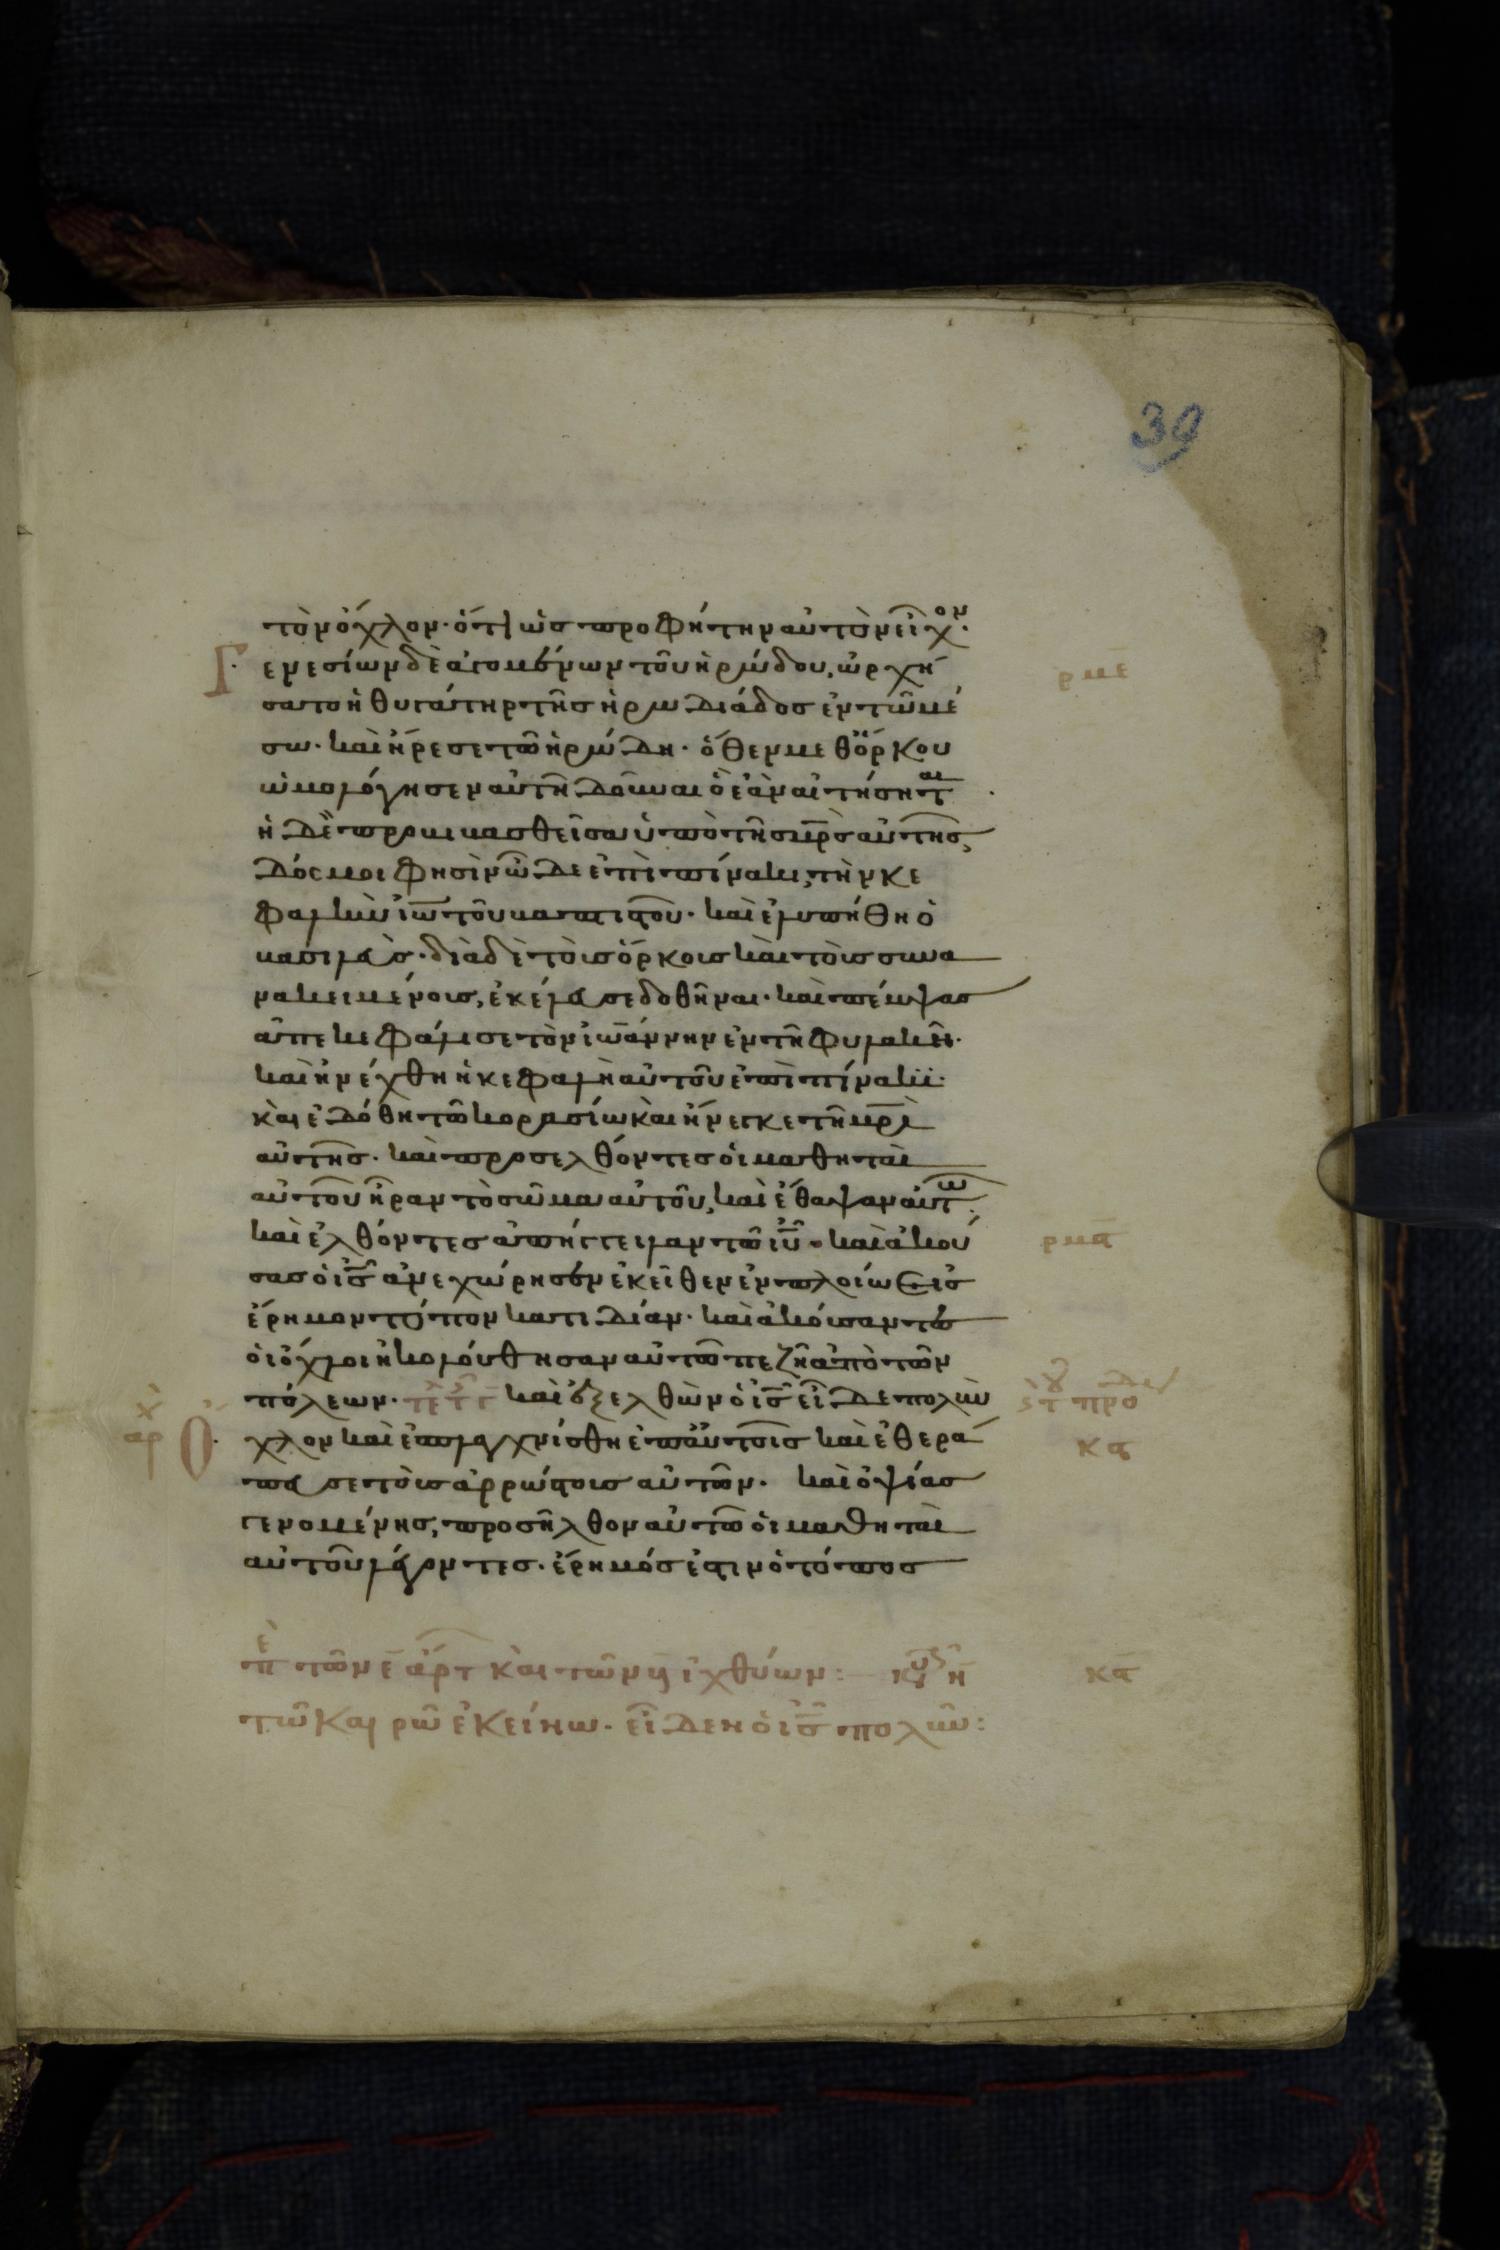 39
τὸν ὄχλον· ὅτι ὡς προφήτην αὐτὸν εἶχον·
Γενεσίων δὲ ἀγομένων τοῦ ἡρώδου, ὠρχή
ρμε
σατο ἡ θυγάτηρ τῆς ἡρωδιάδος ἐν τῶ μέ
σω· καὶ ἤρεσε τῶ ἡρώδη· ὅθεν μεθ ὅρκου
ὡμολόγησεν αὐτῆ δοῦναι ὃ ἐὰν αἰτήσηται
ἡ δὲ προβιβασθεῖσα ὑπὸ τῆς μρς αὐτῆς,
δός μοι φησὶν ὧδε ἐπὶ πίνακι, τὴν κε
φαλὴν ἰω τοῦ βαπτιστοῦ· καὶ ἐλυπήθη ὁ
βασιλεὺς· διὰ δὲ τοὺς ὅρκους καὶ τοὺς συνα
νακειμένους, ἐκέλευσε δοθῆναι· καὶ πέμψας
ἀπεκεφάλισε τὸν ἰωάννην ἐν τῆ φυλακῆ·
καὶ ἠνέχθη ἡ κεφαλὴ αὐτοῦ ἐπὶ πίνακι·
καὶ ἐδόθη τῶ κορασίω καὶ ἤνεγκε τῆ μρὶ
αὐτῆς· καὶ προσελθόντες οἱ μαθηταὶ
αὐτοῦ ἦραν τὸ σῶμα αὐτοῦ, καὶ ἔθαψαν αὐτω
καὶ ἐλθόντες ἀπήγγειλαν τῶ ιυ· καὶ ἀκού
ρμα
σας ὁ ις ἀνεχώρησεν ἐκεῖθεν ἐν πλοίω εἰς
ἔρημον τόπον κατιδίαν· καὶ ἀκούσαντες
οἱ ὄχλοι ἠκολούθησαν αὐτῶ πεζῆ ἀπὸ τῶν
πόλεων· καὶ ἐξελθὼν ὁ ις εἶδε πολὺν
αρχ
Ὄχλον καὶ ἐσπλαγχνίσθη ἐπ αὐτοῖς καὶ ἐθερά
κς
πευσε τοὺς ἀρρώστους αὐτῶν· καὶ ὀψίας
γενομένης, προσῆλθον αὐτῶ οἱ μαθηταὶ
αὐτοῦ λέγοντες· ἔρημός ἐστιν ὁ τόπος
πὲ τῶν ε ἄρτ καὶ τῶν β ἰχθύων: κυ η
κα
τῶ καιρῶ ἐκείνω· εἶδεν ὁ ις πολὺν: